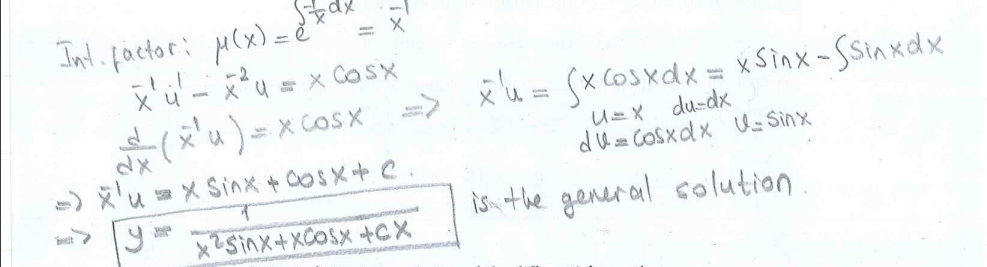 Int. factor: μ(x) = e^{∫-1/x dx} = x^{-1}
x^{-1}u' - x^{-2}u = x cosx
d/dx (x^{-1}u) = x cosx => x^{-1}u = ∫x cosx dx = x sinx - ∫sinx dx
u=x du=dx
dv=cosxdx v=sinx
=> x^{-1}u = x sinx + cosx + c.
=> y = 1/(x^2 sinx + x cosx + cx) is the general solution.